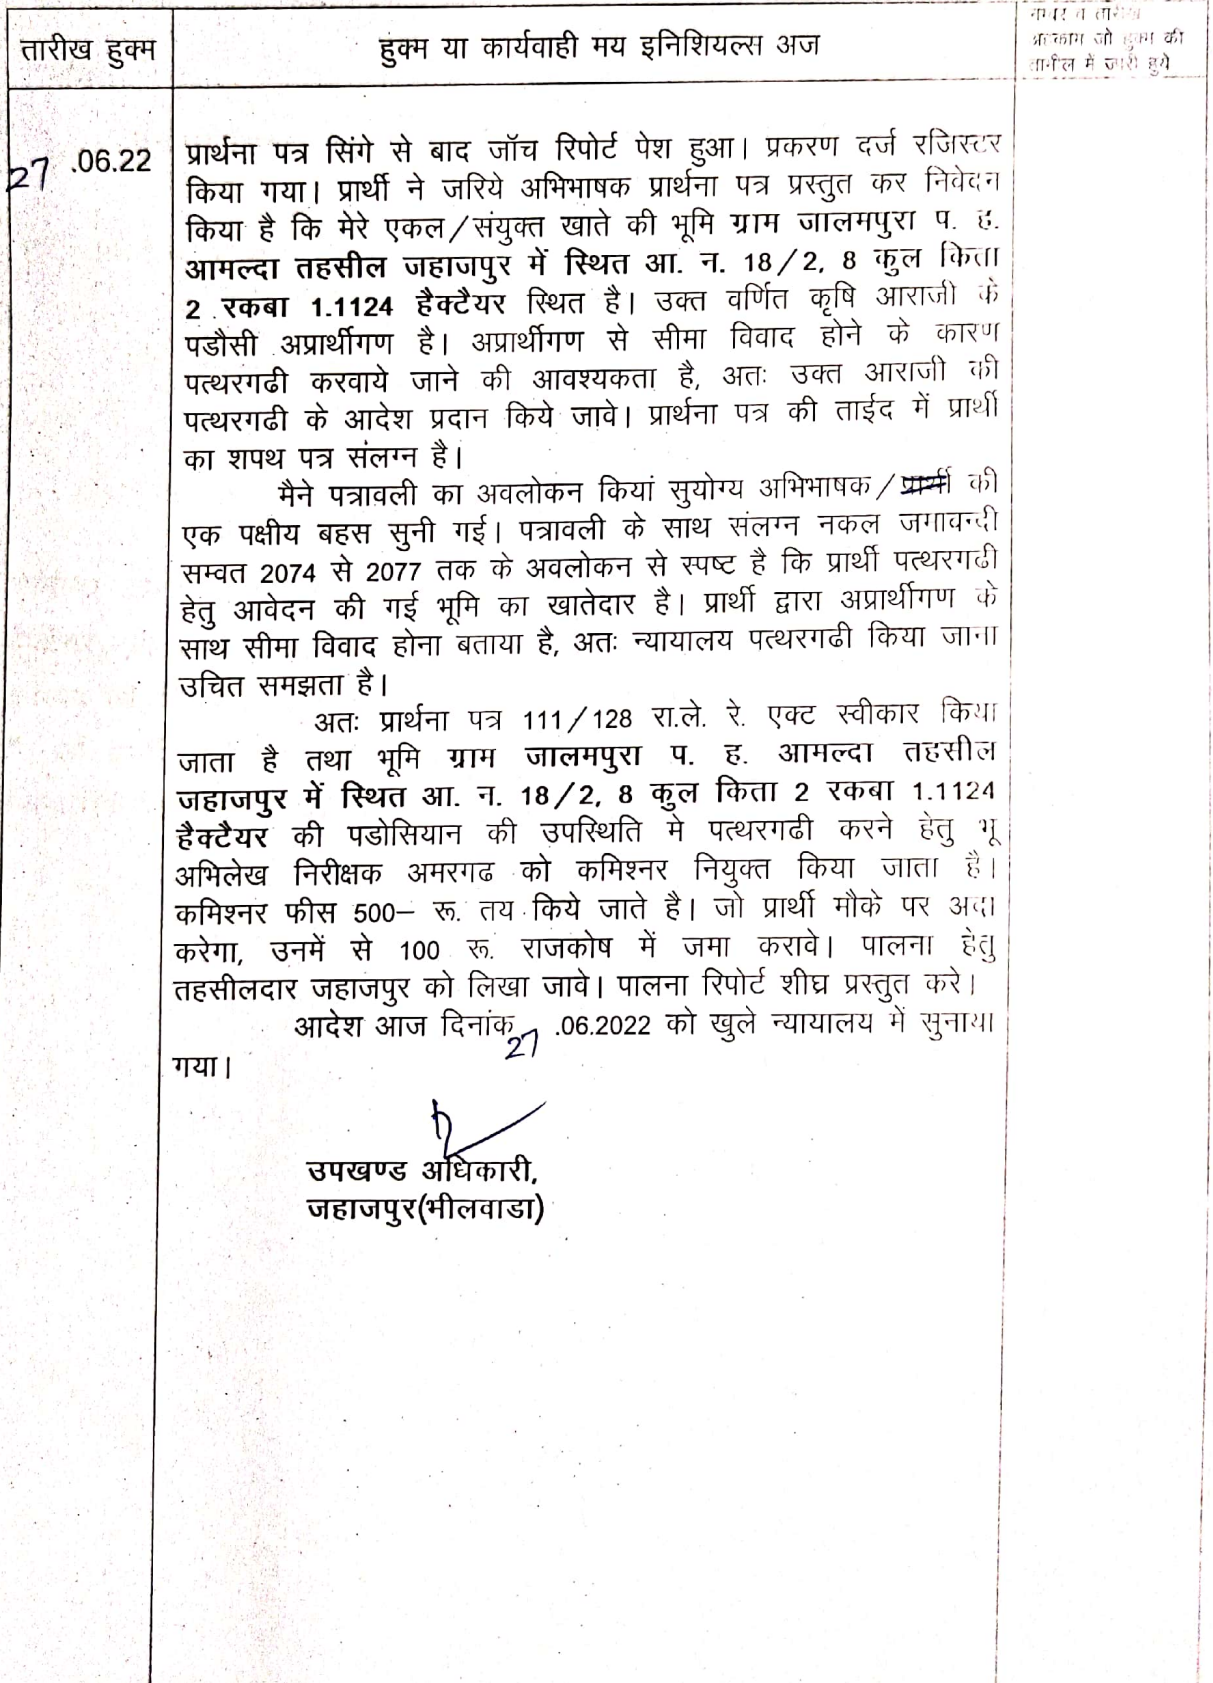 तारीख हुक्म
हुक्म या कार्यवाही मय इनिशियल्स अज
नम्बर व तारीख
अहकाम जो हुक्म की
तामील में जारी हुये
27 .06.22
प्रार्थना पत्र सिंगे से बाद जॉच रिपोर्ट पेश हुआ। प्रकरण दर्ज रजिस्टर
किया गया। प्रार्थी ने जरिये अभिभाषक प्रार्थना पत्र प्रस्तुत कर निवेदन
किया है कि मेरे एकल/संयुक्त खाते की भूमि ग्राम जालमपुरा प. ह.
आमल्दा तहसील जहाजपुर में स्थित आ. न. 18/2, 8 कुल किता
2 रकबा 1.1124 हैक्टैयर स्थित है। उक्त वर्णित कृषि आराजी के
पडौसी अप्रार्थीगण है। अप्रार्थीगण से सीमा विवाद होने के कारण
पत्थरगढी करवाये जाने की आवश्यकता है, अतः उक्त आराजी की
पत्थरगढी के आदेश प्रदान किये जावे। प्रार्थना पत्र की ताईद में प्रार्थी
का शपथ पत्र संलग्न है।
मैने पत्रावली का अवलोकन कियां सुयोग्य अभिभाषक/प्रार्थी की
एक पक्षीय बहस सुनी गई। पत्रावली के साथ संलग्न नकल जमाबन्दी
सम्वत 2074 से 2077 तक के अवलोकन से स्पष्ट है कि प्रार्थी पत्थरगढी
हेतु आवेदन की गई भूमि का खातेदार है। प्रार्थी द्वारा अप्रार्थीगण के
साथ सीमा विवाद होना बताया है, अतः न्यायालय पत्थरगढी किया जाना
उचित समझता है।
अतः प्रार्थना पत्र 111/128 रा.ले. रे. एक्ट स्वीकार किया
जाता है तथा भूमि ग्राम जालमपुरा प. ह. आमल्दा तहसील
जहाजपुर में स्थित आ. न. 18/2, 8 कुल किता 2 रकबा 1.1124
हैक्टैयर की पडोसियान की उपस्थिति मे पत्थरगढी करने हेतु भू
अभिलेख निरीक्षक अमरगढ को कमिश्नर नियुक्त किया जाता है।
कमिश्नर फीस 500– रू. तय किये जाते है। जो प्रार्थी मौके पर अदा
करेगा, उनमें से 100 रू. राजकोष में जमा करावे। पालना हेतु
तहसीलदार जहाजपुर को लिखा जावे। पालना रिपोर्ट शीघ्र प्रस्तुत करे।
आदेश आज दिनांक 27 .06.2022 को खुले न्यायालय में सुनाया
गया।
उपखण्ड अधिकारी,
जहाजपुर(भीलवाडा)